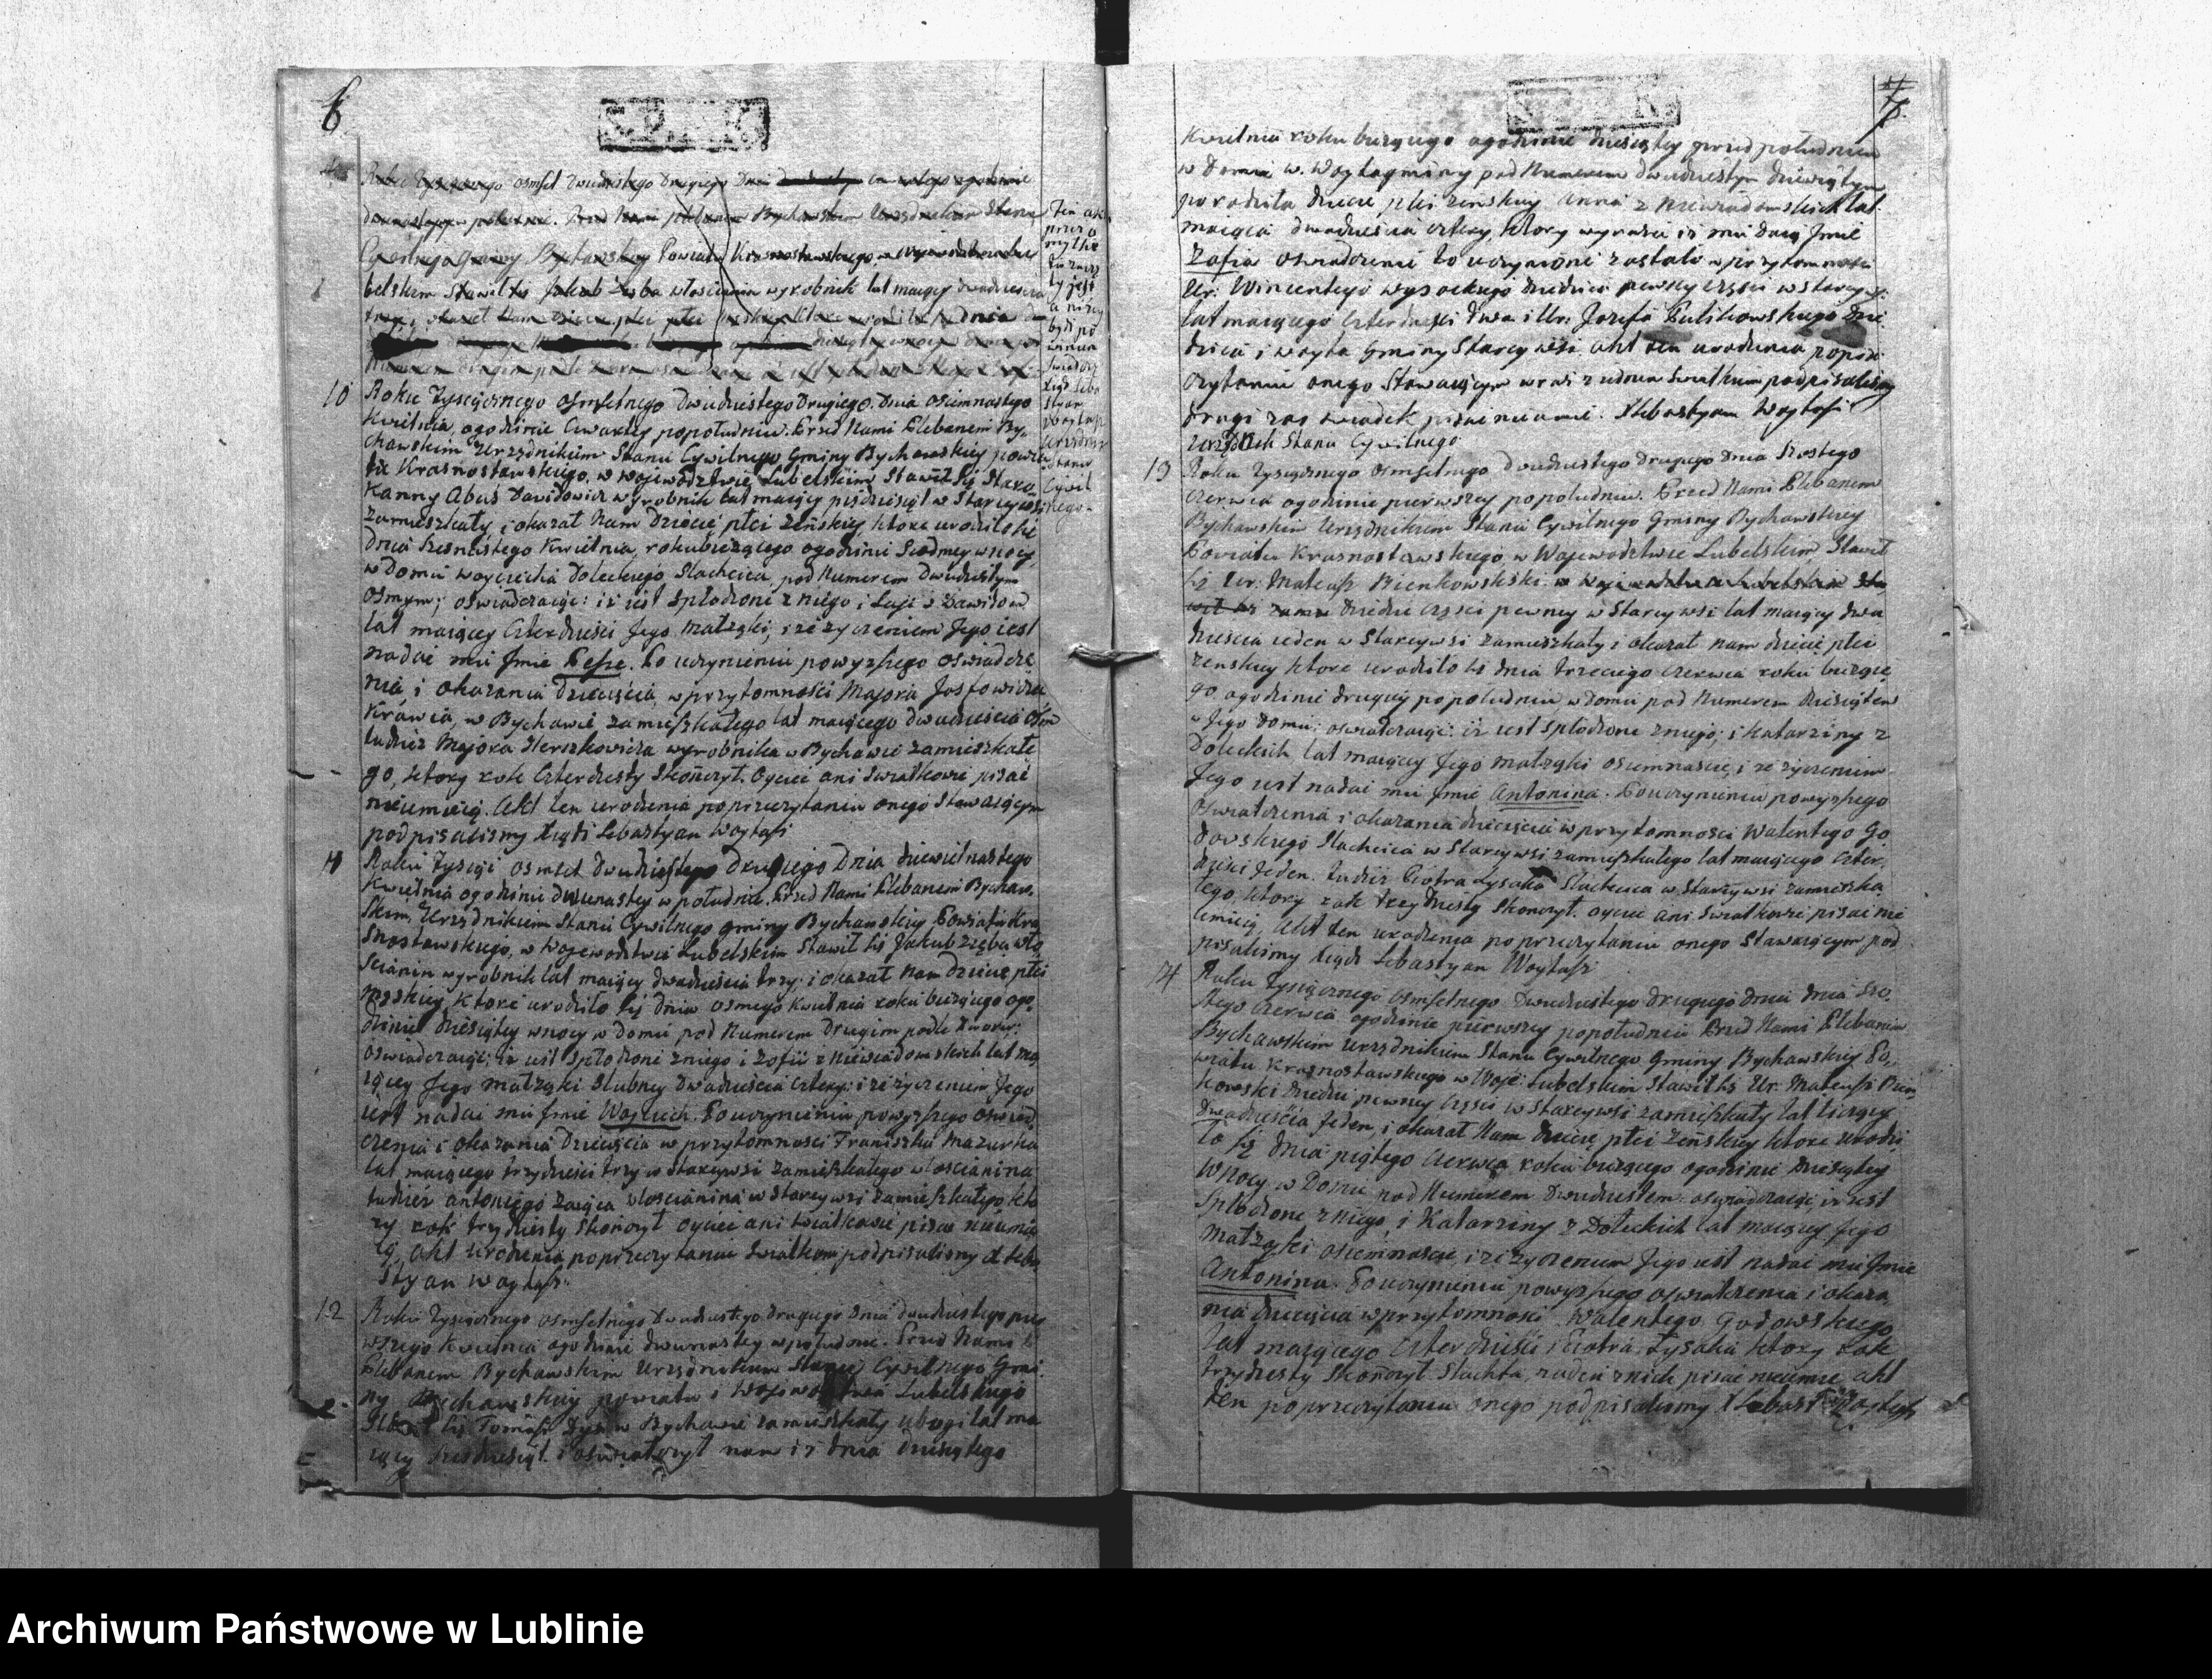 6
Roku Tysiącznego osmset Dwudziestego Drugiego Dnia
Przed Nami plebanem Bychawskim Urzędnikiem Stanu
Cywilnego Gminy Bychawskiey Powiatu Krasnostawskiego w Wojewodztwie Lu
belskim Stawił się Jakub Zięba włościanin wyrobnik lat maiący dwadzieścia
trzy, okazał Nam Dziecie płci męskiey które urodziło się dnia
Ten akt
przez o
myłkę
tu zaczę
ty jest
a niżey
był po
winien
Xiądz Seba
styan
Woytaszi
Urzędnik
Stanu
Cywil
nego
10
Roku Tysiącznego osmsetnego Dwudziestego Drugiego. Dnia osiemnastego
Kwietnia, ogodzinie czwartey popołudniu. Przed Nami Plebanem By-
chawskim Urzędnikiem Stanu Cywilnego Gminy Bychawskiey powia
tu Krasnostawskiego, w Województwie Lubelskim Stawił się Staro
zakonny Abuś Dawidowicz wyrobnik lat maiący pięćdziesiąt w Stareywsi
zamieszkały, i okazał Nam Dziecie płci żeńskiey, które urodziło się
dnia szesnastego Kwietnia, roku bieżącego ogodzinie Siodmey wnocy,
w Domu Woyciecha Doleckiego Slachcica, pod Numerem Dwudziestym
osmym; oswiadczaiąc: iż iest spłodzone z niego i
lat maiącey czterdzieści Jego małżąki, i że życzeniem Jego iest
nadać mu Jmie Pesze. Po uczynieniu powyższego oświadcze
nia i okazania Dziecięcia, w przytomności Majora Josfowicza
Krawca, w Bychawie zamieszkałego lat maiącego dwadzieścia osm
tudzież Majora Herszkowicza wyrobnika w Bychawie zamieszkałe
go, ktory rok czterdziesty skończył. Oyciec ani Swiadkowie pisać
nieumieią. Akt ten urodzenia poprzeczytaniu onego Stawaiącym
podpisaliśmy Xiądz Sebastyan Woytaszi
11
Roku Tysiąc osmset Dwudziestego Drugiego Dnia dziewietnastego
Kwietnia ogodzinie dwunastey w południe. Przed Nami Plebanem Bychaw-
skim, Urzędnikiem Stanu Cywilnego gminy Bychawskiey Powiatu Kra
snostawskiego, w Wojewodztwie Lubelskim Stawił się Jakub Zięba wło
ścianin wyrobnik lat maiący dwadzieścia trzy, i okazał Nam Dziecie płci
męskiey, które urodziło się dnia osmego Kwietnia roku bieżącego ogo
dzinie dziesiątey wnocy w domu pod Numerem Drugim podle Dworu:
oswiadczaiąc: iż iest spłodzone zniego i Zofii z Niewiadomskich lat ma
iącey Jego małżąki Slubney Dwadzieścia cztery; i że życzeniem Jego
iest nadać mu Jmie Woyciech. Po uczynieniu powyższego oswiad
czenia i okazania Dziecięcia w przytomności Franiszka Mazurka
lat maiącego trzydzieści trzy w Stareywsi zamieszkałego włościanina
tudzież antoniego Zaiąca włościanina w Stareywsi zamieszkałego, kto
ry rok trzydziesty skończył oyciec ani swiadkowie pisać nieumie
ią, akt urodzenia poprzeczytaniu swiadkom podpisaliśmy X Seba
styan Woytaszi
12
Roku Tysiącznego osmsetnego Dwudziestego drugiego dnia dwudziestego pier
wszego Kwietnia ogodzinie dwunastey wpołudnie. Przed Nami
Plebanem Bychawskim Urzędnikiem Stanu Cywilnego Gmi
ny Bychawskiey powiatu i Województwa Lubelskiego
Stawił się Tomasz Dyś w Bychawie zamieszkały ubogi lat ma
iący sześdziesiąt i oświadczył nam iż dnia dziesiątego
7
Kwietnia roku bieżącego ogodzinie dziesiątey przed południem
w Domu w. Woyta gminy pod Numerem dwudziestym dziewiątym
porodziła dziecie płci żenskiey Anna z Niewiadomskich lat
maiąca dwadzieścia cztery, ktory wyraża iż mu daią Jmie
Zofia oswiadczenie to uczynione zostało w przytomności
Ur: Wincentego Wysockiego Dziedzica pewney części w Stareywsi
lat maiącego czterdzieści dwa i Ur: Jozefa Pulikowskiego Dzie
dzica i woyta Gminy Stareywsi, akt ten urodzenia poprze
czytaniu onego Stawaiącym wraz z jednem swiadkiem podpisaliśmy
drugi zaś swiadek pisać nieumie. X Sebastyan Woytaszi
Urzędnik Stanu Cywilnego
13
Roku Tysiącznego osmsetnego Dwudziestego drugiego Dnia szostego
czerwca ogodzinie pierwszey popołudniu. Przed Nami Plebanem
Bychawskim Urzędnikiem Stanu Cywilnego Gminy Bychawskiey
Powiatu Krasnostawskiego w Wojewodztwie Lubelskim Stawił
się Ur: Mateusz Bienkowski w Wojewodztwie Lubelskim Sta
wił się zamie dziedzic części pewney w Stareywsi lat maiący dwa
dzieścia ieden w Stareywsi zamieszkały i okazał nam dziecie płci
żenskiey ktore urodziło się dnia trzeciego czerwca roku bieżące
go, ogodzinie drugiey popołudniu, w domu pod Numerem dziesiątem
w Jego Domu: oswiadczaiąc: iż iest spłodzone zniego, i Katarziny z
Doleckich lat maiącey Jego małżąki osiemnaście, i że życzeniem
Jego iest nadać mu Jmie Antonina. Po uczynieniu powyższego
oswiadczenia i okazania dziecięcia w przytomności Walentego Go
dowskiego Slachcica w Stareywsi zamieszkałego lat maiącego czter
dzieści Jeden. tudzież Piotra Łysaka Slachcica w Stareywsi zamieszka
łego, ktory rok trzydziesty skończył. oyciec ani Swiadkowie pisać nie
umieią, Akt ten urodzenia poprzeczytaniu onego Stawaiącym pod
pisaliśmy Xiądz Sebastyan Woytaszi
14
Roku Tysiącznego osmsetnego Dwudziestego drugiego dnia dnia szo-
stego czerwca ogodzinie pierwszey popołudniu Przed Nami Plebanem
Bychawskim Urzędnikiem Stanu Cywilnego Gminy Bychawskiey Po-
wiatu Krasnostawskiego w Woje: Lubelskim Stawił się Ur. Mateusz Bien
kowski dziedzic pewney części w Stareywsi zamieszkały lat liczący
Dwadzieścia Jeden, i okazał Nam dziecie płci żeńskiey ktore urodzi
ło się dnia piątego czerwca roku bieżącego ogodzinie dziesiątey
wnocy w Domu pod Numerem Dwudziestem: oswiadczaiąc iż iest
spłodzone z niego, i Katarziny z Doleckich lat maiącey Jego
małżąki osiemnaście, i że życzeniem Jego iest nadać mu Jmie
Antonina. Po uczynieniu powyższego oswiadczenia i okaza
nia dziecięcia w przytomności Walentego Godowskiego
lat maiącego czterdzieści i Piotra Łysaka ktory rok
trzydziesty skończył Slachta, żaden z nich pisać nieumie, akt
ten poprzeczytaniu onego podpisaliśmy X Sebast: Woytaszi
Archiwum Państwowe w Lublinie